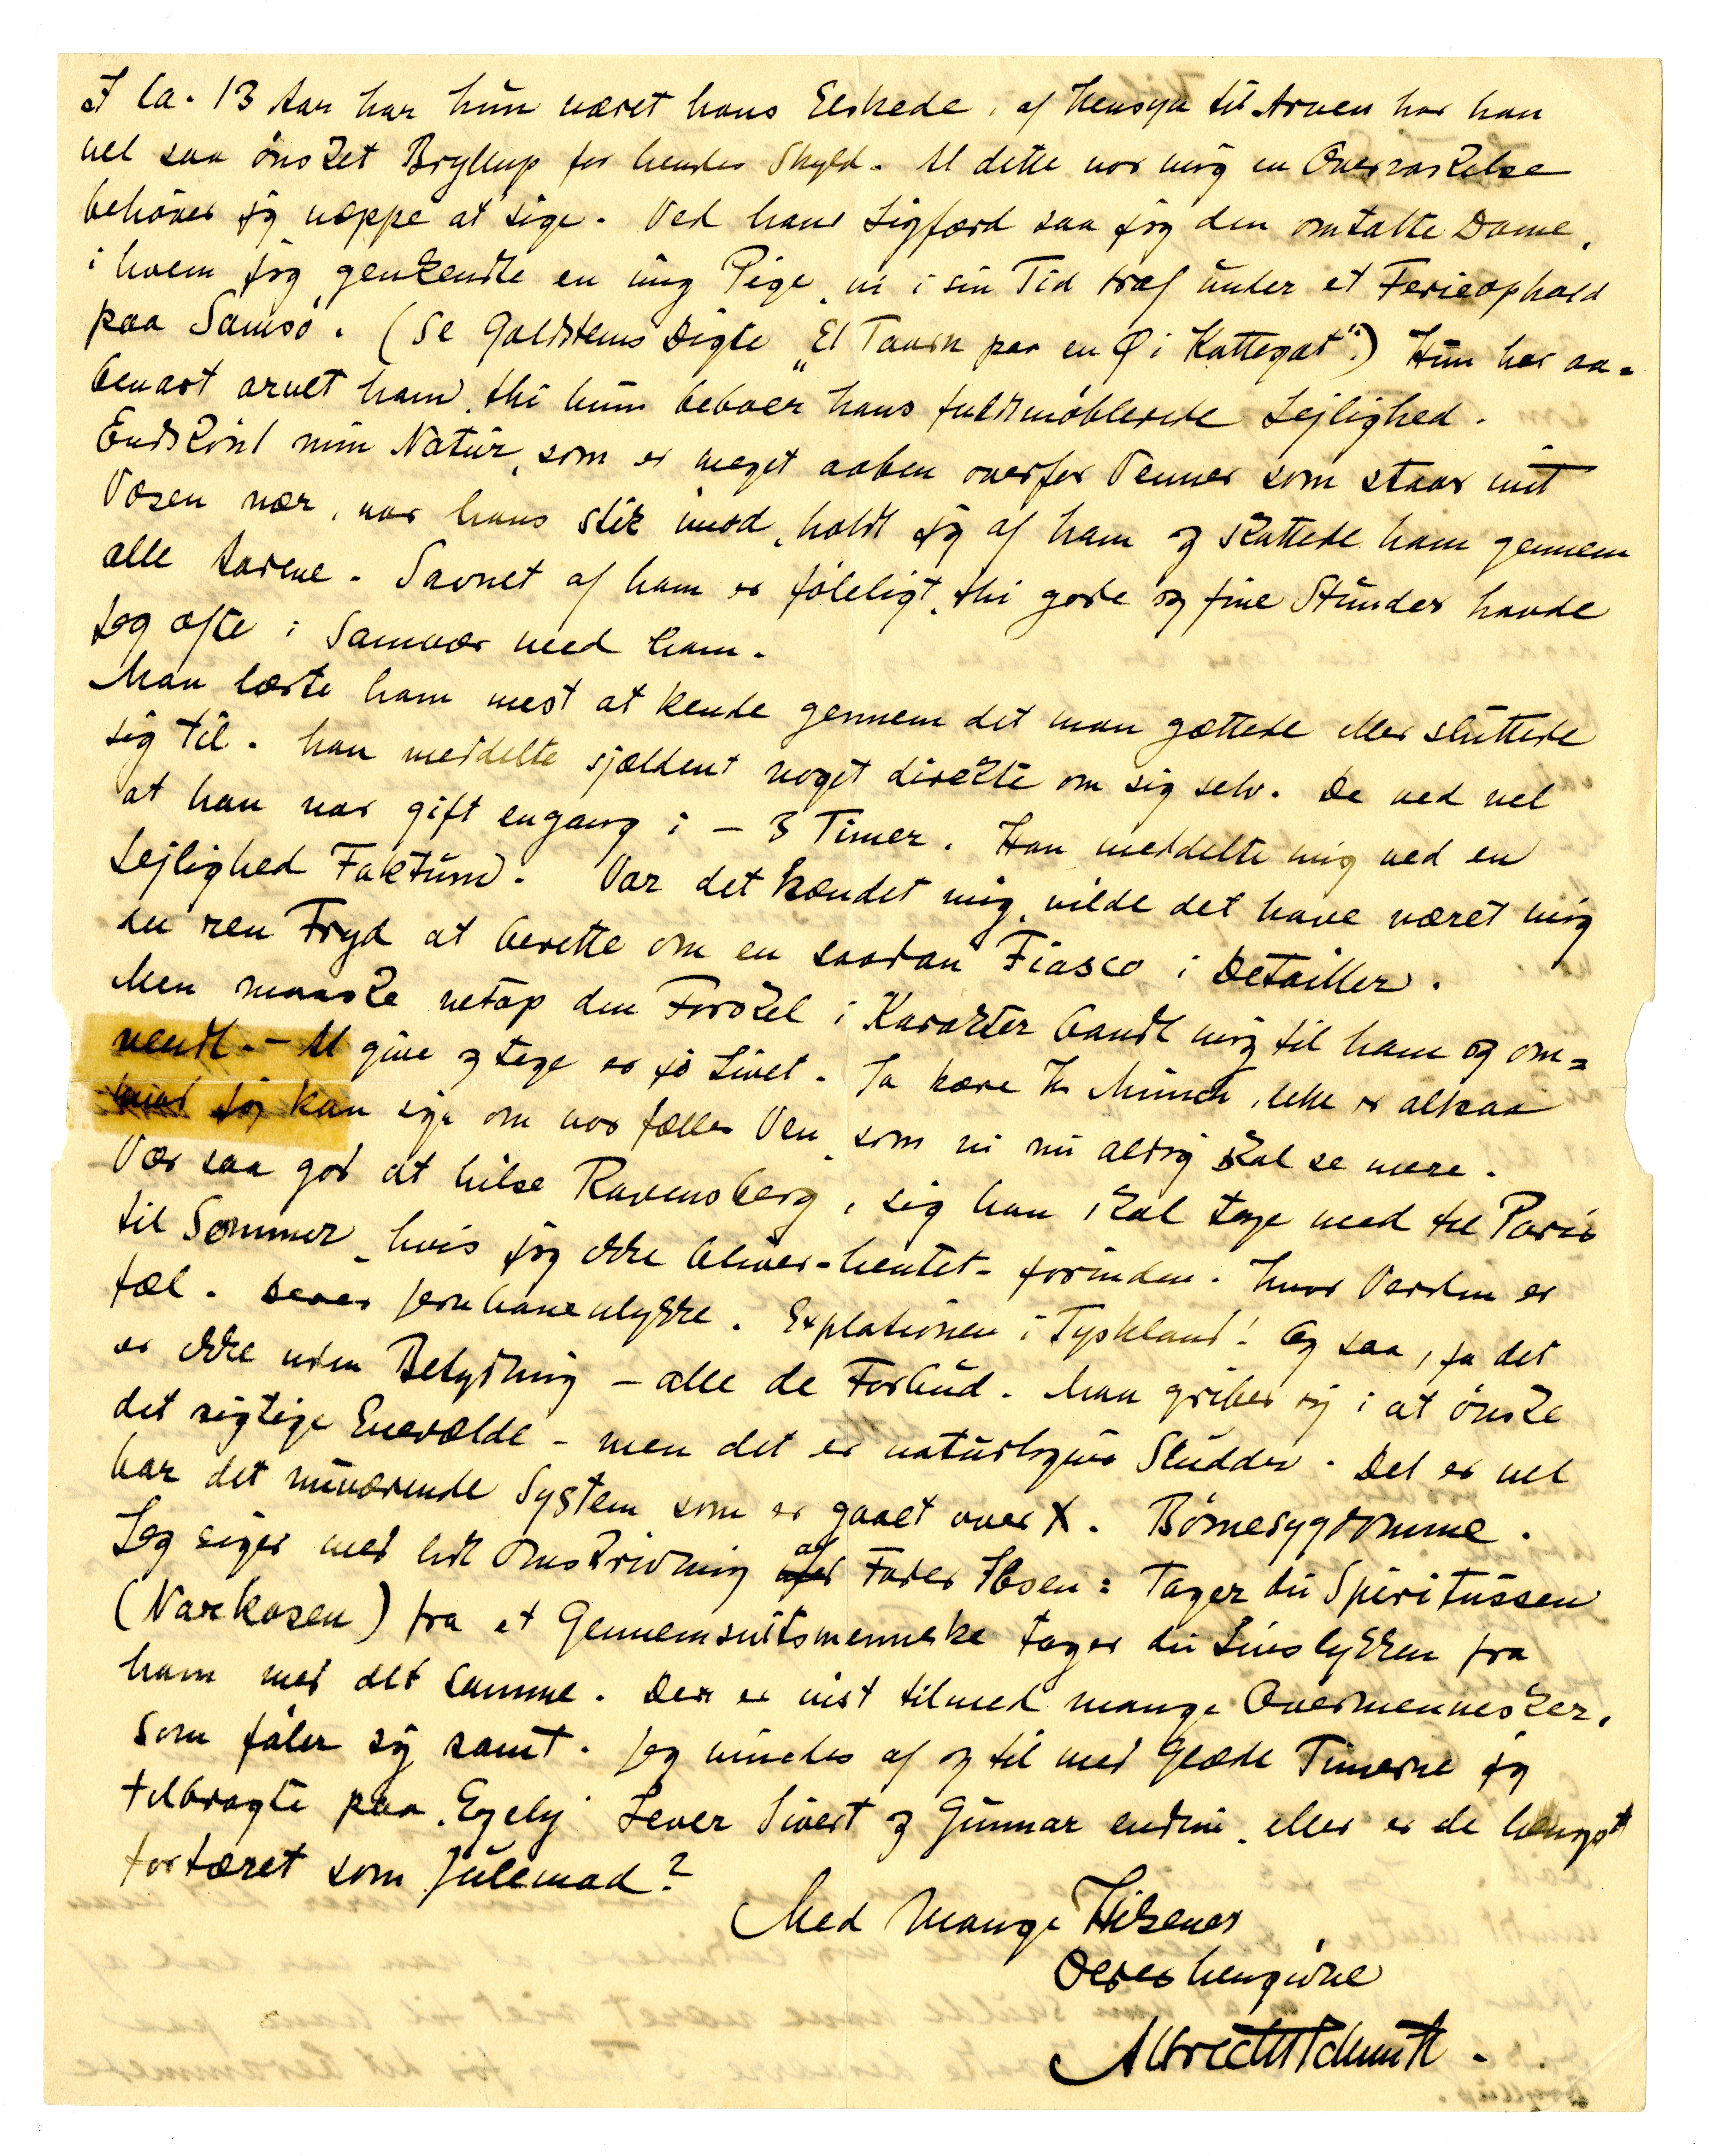 I ca. 13 Aar har hun været hans Elskede, af Hensyn til Arven har han
vel saa ønsket Bryllup for hendes Skyld. At dette var mig en Overraskelse
behøver jeg næppe at sige. Ved hans Ligfærd saa jeg den omtalte Dame,
i hvem jeg genkendte en ung Pige, vi i sin Tid traf under et Ferieophold
paa Samsø. (Se Goldsteins Digte „Et Taarn paa en Ø i Kattegat“.) Hun har aa=
benbart arvet ham, thi hun beboer hans fuldtmøblerede Lejlighed.
Endskønt min Natur, som er meget aaben overfor Venner som staar mit
Væsen nær, var hans stik imod, holdt jeg af ham og skattede ham gennem
alle Aarene. Savnet af ham er føleligt, thi gode og fine Stunder havde
jeg ofte i Samvær med ham.
Man lærte ham mest at kende gennem det man gættede eller sluttede
sig til. Han meddelte sjældent noget direkte om sig selv. De ved vel
at han var gift engang i – 3 Timer. Han meddelte mig ved en
Lejlighed Faktum. Var det hændet mig, vilde det have været mig
en ren Fryd at berette om en saadan Fiasco i Detailler.
Men maaske netop den Forskel i Karakter bandt mig til ham og om=
vendt. – At give og tage er jo Livet. Ja kære Hr Munch, dette er altsaa
hvad jeg kan sige om vor fælles Ven, som vi nu aldrig skal se mere.
Vær saa god at hilse Ravensberg, sig han skal tage med til Paris
til Sommer, hvis jeg ikke bliver – hentet – forinden. Hvor Verden er
fæl. Deres Jernbaneulykke. Explotionen i Tyskland! Og saa, ja det
er ikke uden Betydning – alle de Forbud. Man griber sig i at ønske
det rigtige Enevælde – men det er naturligvis Sludder. Det er vel
bar det nuværende System som er gaaet over X. Børnesygdomme.
Jeg siger med lidt Omskrivning af Fader Ibsen: Tager du Spiritussen
(Narkosen) fra et Gennemsnitsmenneske tager du Livslykken fra
ham med det samme. Der er vist tilmed mange Overmennesker,
som føler sig ramt. Jeg mindes af og til med Glæde Timerne jeg
tilbragte paa Egely. Lever Sivert og Gunnar endnu, eller er de længst
fortæret som Julemad?
Med mange Hilsener
Deres hengivne
Albrecht Schmidt.